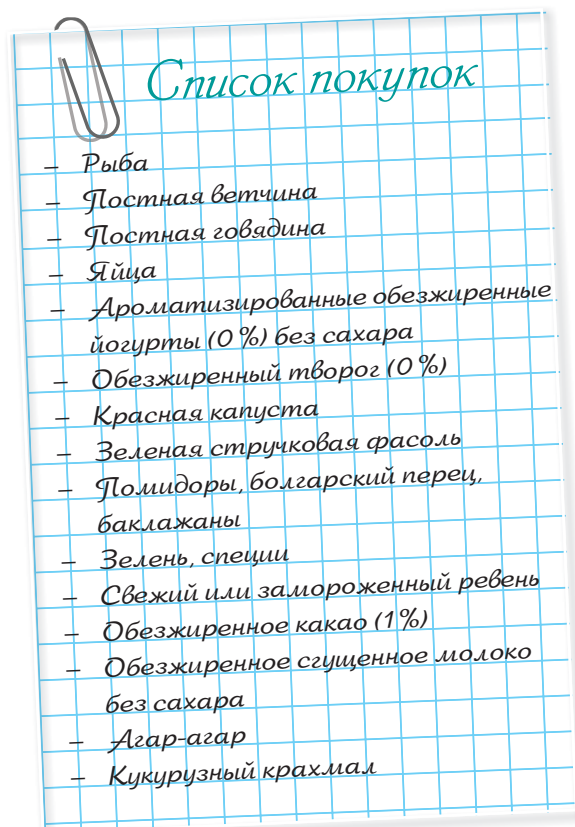 Список покупок
– Рыба
– Постная ветчина
– Постная говядина
– Яйца
– Ароматизированные обезжиренные
йогурты (0 %) без сахара
– Обезжиренный творог (0 %)
– Красная капуста
– Зеленая стручковая фасоль
– Помидоры, болгарский перец,
баклажаны
– Зелень, специи
– Свежий или замороженный ревень
– Обезжиренное какао (1 %)
– Обезжиренное сгущенное молоко
без сахара
– Агар-агар
– Кукурузный крахмал